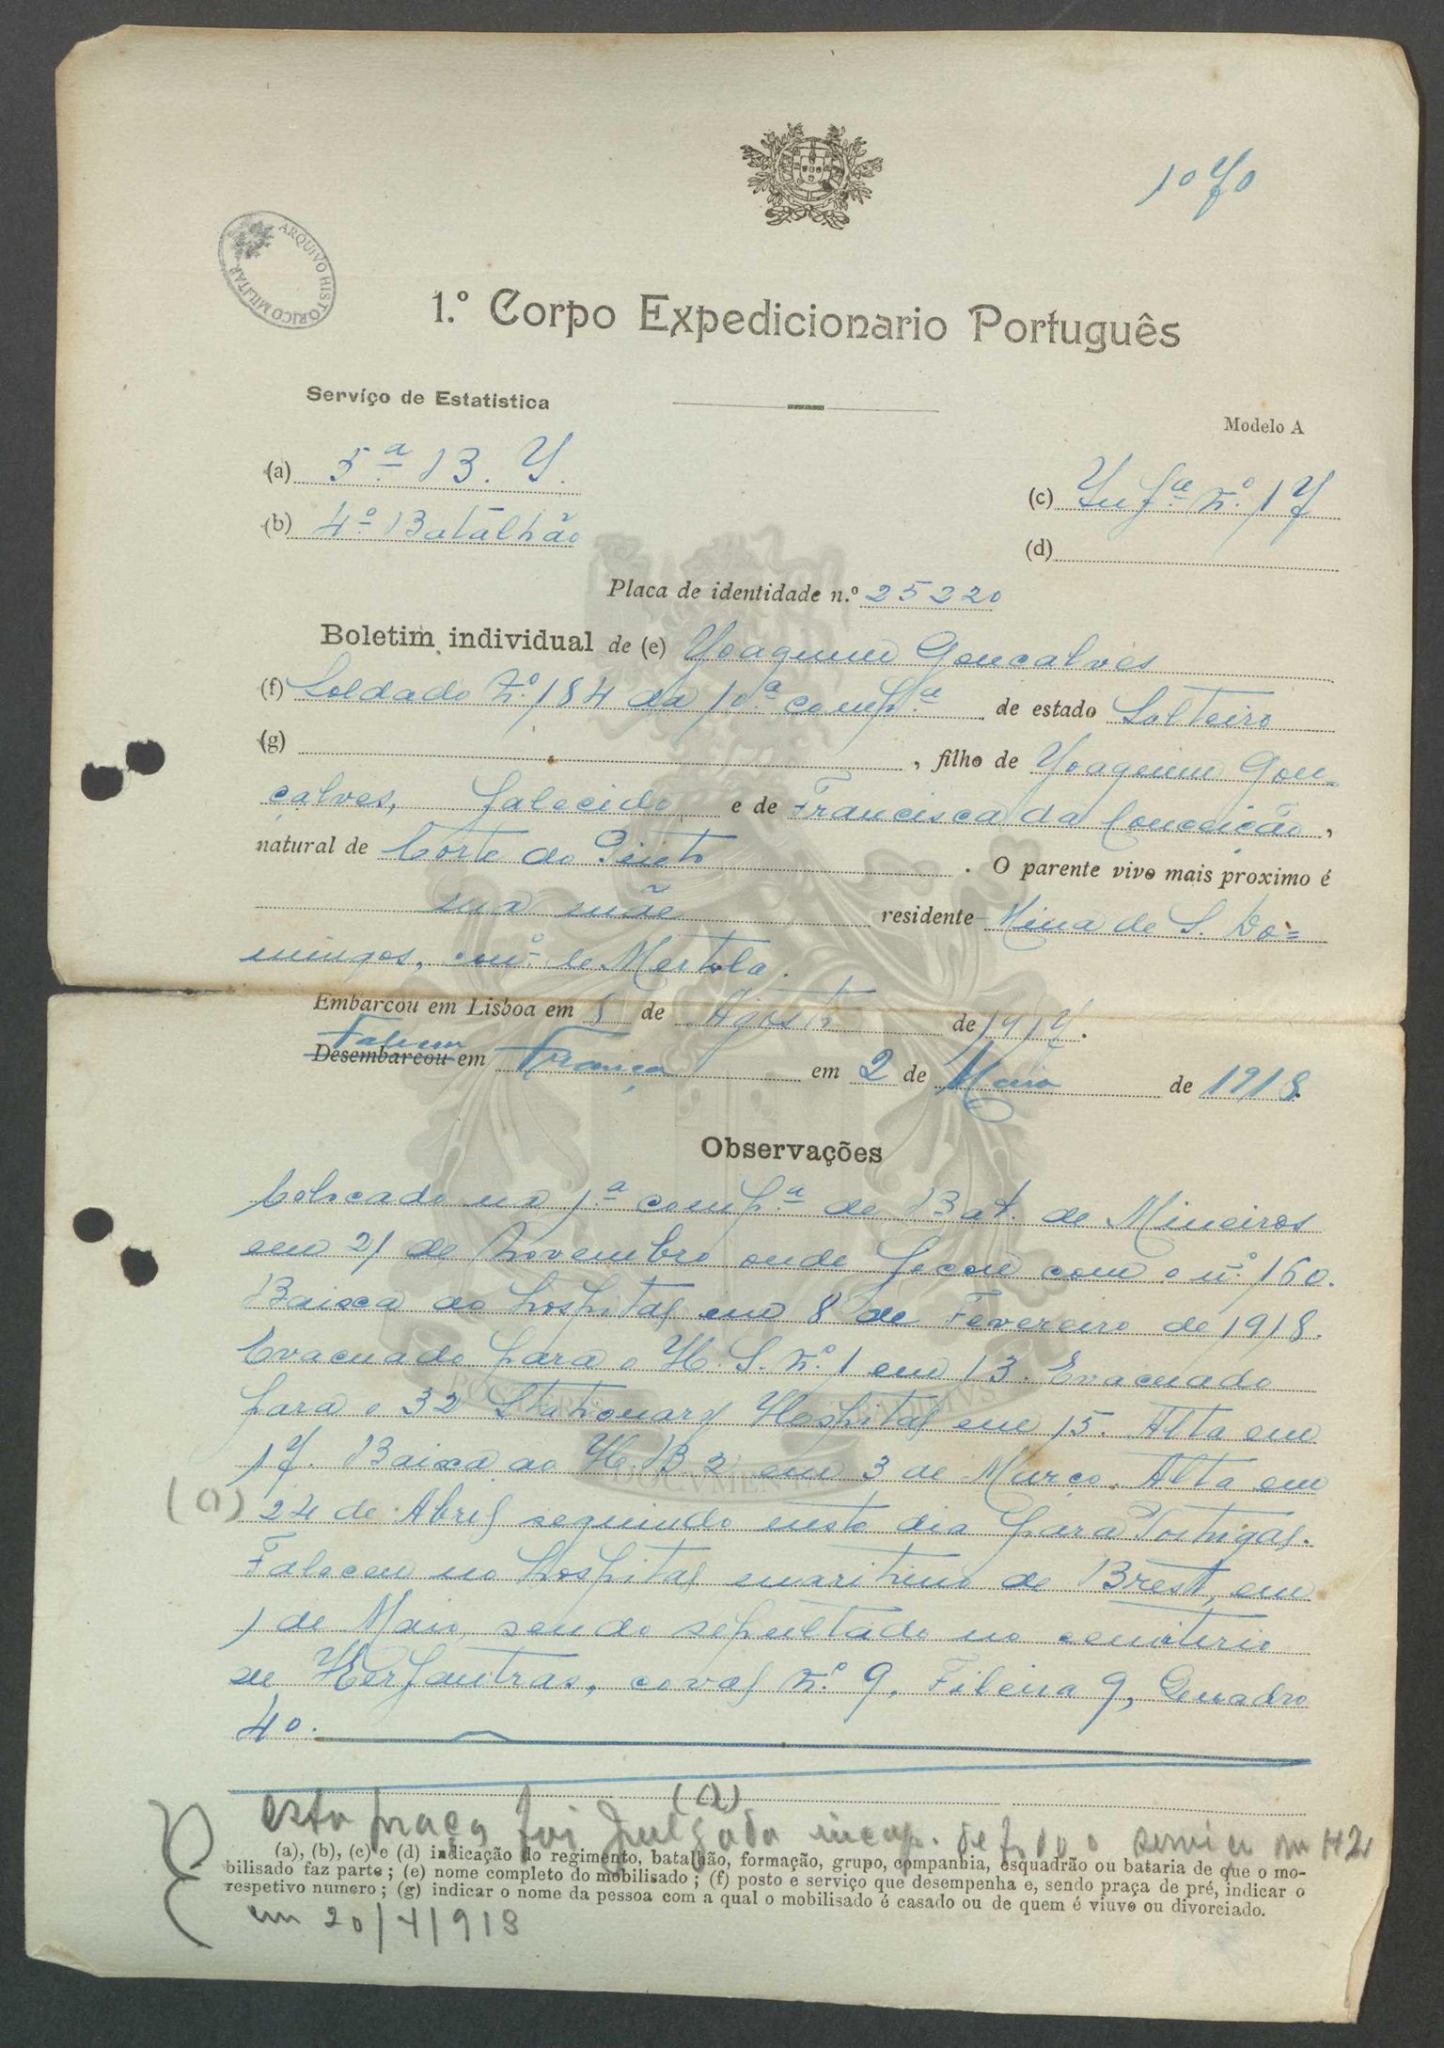 1070
ARQUIVO HISTORICO MILITAR
1.º Corpo Expedicionario Português
Serviço de Estatistica
Modelo A
(a) 5ª B. I.
(c) Infª nº 17
(b) 4º Batalhão
(d)
Placa de identidade n.º 25220
Boletim individual de (e) Joaquim Goncalves
(f) Soldado nº 184 da 10ª compª de estado Solteiro
(g) , filho de Joaquim Gon=
çalves, falecido e de Francisca da Conceição,
natural de Corte do Pinto. O parente vivo mais proximo é
sua mãe residente Mina de S. Do=
mingos, conº de Mertola.
Embarcou em Lisboa em 5 de Agosto de 1917.
Faleceu
Desembarcou em França em 2 de Maio de 1918.
Observações
Colocado na 1ª compª de Bat. de Mineiros
em 21 de Novembro onde ficou com o nº 160.
Baixa ao hospital em 8 de Fevereiro de 1918.
Evacuado para o H. S. nº 1 em 13. Evacuado
para o 32 Stationary Hospital em 15. Alta em
17. Baixa ao H. B. 2 em 3 de Março. Alta em
(a) 24 de Abril seguindo neste dia para Portugal.
Faleceu no hospital maritimo de Brest, em
1 de Maio, sendo sepultado no cemiterio
de Kerfautras, coval nº 9, Fileira 9, Quadro
40.
(a)
esta praça foi julgada incap. de todo o serviço em H2
(a), (b), (c) e (d) indicação do regimento, batalhão, formação, grupo, companhia, esquadrão ou bataria de que o mo-
bilisado faz parte; (e) nome completo do mobilisado; (f) posto e serviço que desempenha e, sendo praça de pré, indicar o
respetivo numero; (g) indicar o nome da pessoa com a qual o mobilisado é casado ou de quem é viuvo ou divorciado.
em 20/4/918